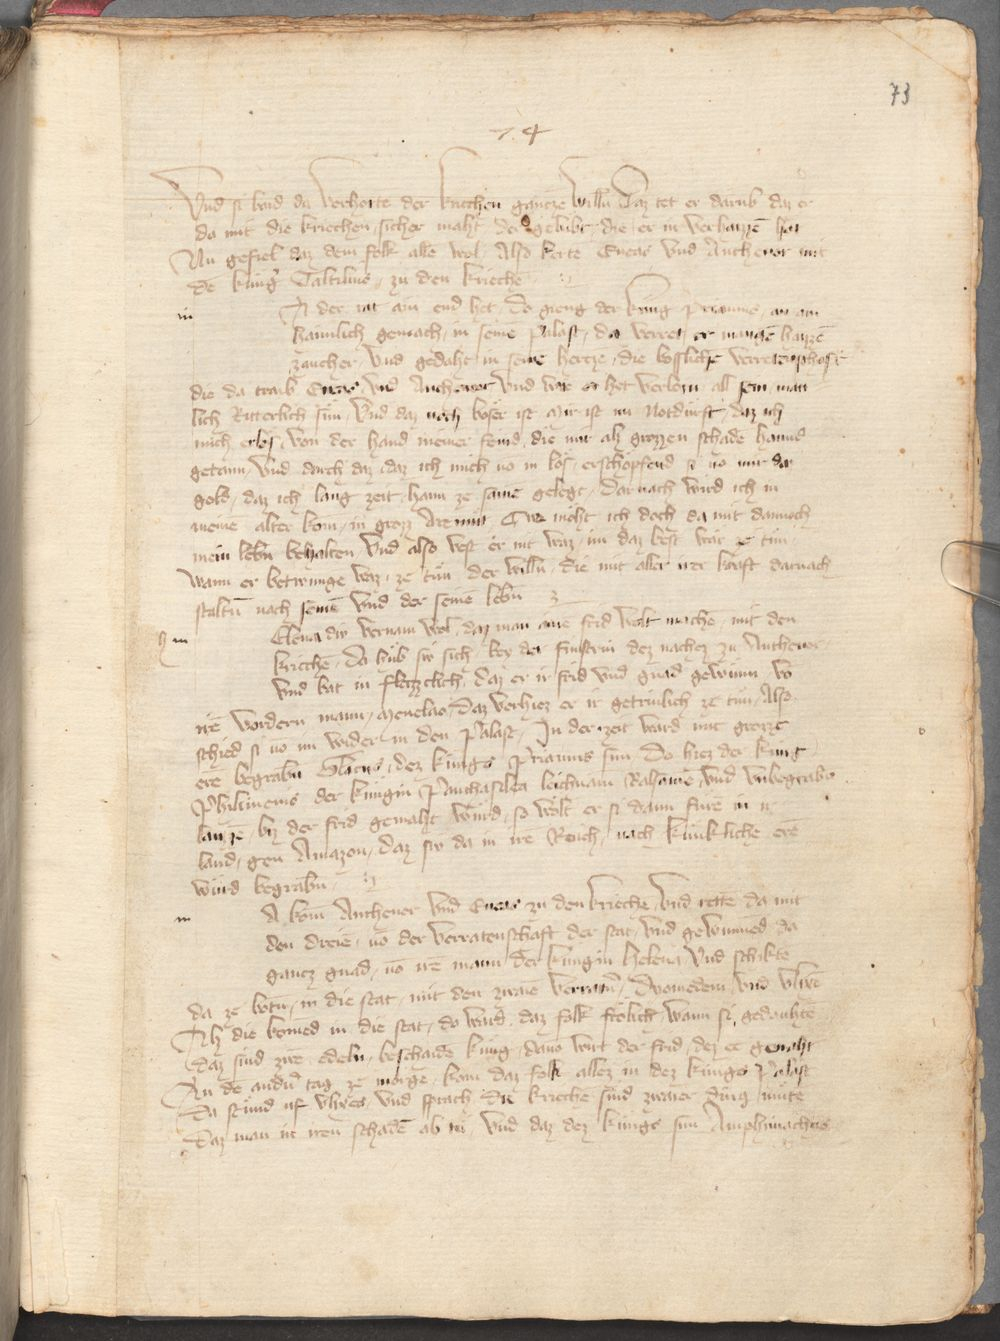 73
74
Vnd si baid da verhorte der kriechen gancze willn Daz tet er darub daz er
da mit die kriechen sicher macht der gelubt die er in verhaizzē hat
Nu gefiel daz dem folk alle wol Also kerte Eneas vnd Anthenor mit
dē kung Taltilius zu den kriechē
n
A der rat ain end het Do gieng der kung Priamus an ain
haimlich gemach in seinē palast da verret er mangē haizzē
zaucher vnd gedaht in seine hercze die bossliche verretenschaft
die da traib Eneas vnd Anthenor vnd wie er het verlorn all sein man
lich Ritterlich sun Vnd daz noch boser ist mir ist nu notdurft daz ich
mich erloß von der hand meiner feind die mir als grozzen schadē hannd
getann vnd durch daz daz ich mich vō in los erschopfend si vō mir daz
gold daz ich lang zeit hann ze samē gelegt Darnach wird ich in
meinē alter kom in groz Armut Owe moht ich doch da mit dannoch
mein lebn behalten Vnd also west er nit waz im daz best wär ze tun
wann er betwunge waz ze tun der willn die mit aller irer kraft darnach
staltn nach seinē vnd der seinē lebn
h m
Elena die vernam wol daz man aine frid wolt mache mit den
kriechē Da hub sie sich bey der finstrin dez nachez zu Anthenor
vnd bat in fleizzclich daz er ir frid vnd gnad gewunn vō
irē vordern mann Menelao Daz verhiez er ir getrulich ze tun Also
schied si vō im wider in den Palast In der zeit ward mit grozze
ere begrabn Glacus dez kungs Priamus sun Do hiez der kung
Phylimenis der kungin Panthasilea leichnam Balsame vnd vnbegrabe
lazzē biz der frid gemaht wurd so wolt er si dann furē in ir
land gen Amazon daz sie da in irē Reich nach kunkliche erē
wurd begrabn
m
A kom Anthenor vnd Eneas zu den kriechē vnd rette da mit
den dreiē vō der verratenschaft der stat vnd gewunned da
gancz gnad vō irē mann der kungin Helena Vnd schikte
da ze botn in die stat mit den zwaie Dyomedem vnd Vlixē
Alz die komed in die stat do ward daz folk frolich wann si gedauhte
daz sind zwē edeln beschaidē kung davō wirt der frid dez ee gemaht
An dē andn tag ze morge kom daz folk allez in dez kungs Palast
Da stund uf Vlixes vnd sprach Die kriechē sind zwaier ding mute
Daz man in iren schadē ab leg vnd daz dez kungs sun Amphimachus